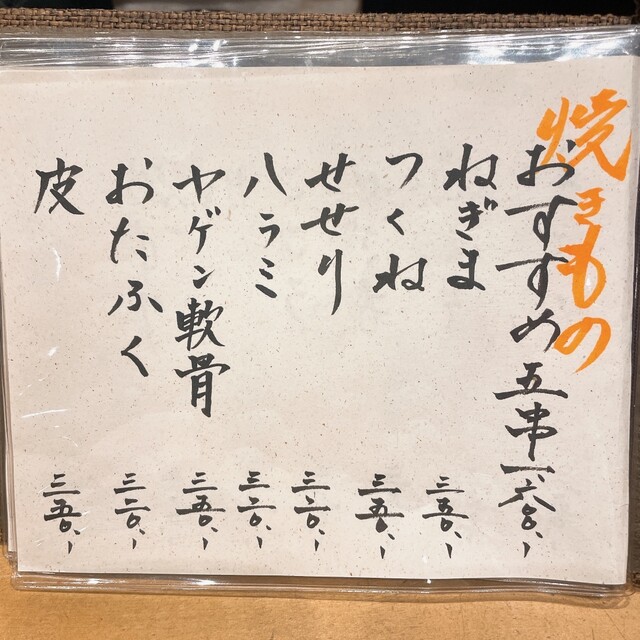 焼きもの
おすすめ五串 一、六〇〇、ー
ねぎま 三五〇、ー
つくね 三五〇、ー
せせり 三二〇、ー
ハラミ 三二〇、ー
ヤゲン軟骨 三五〇、ー
おたふく 三二〇、ー
皮 三五〇、ー